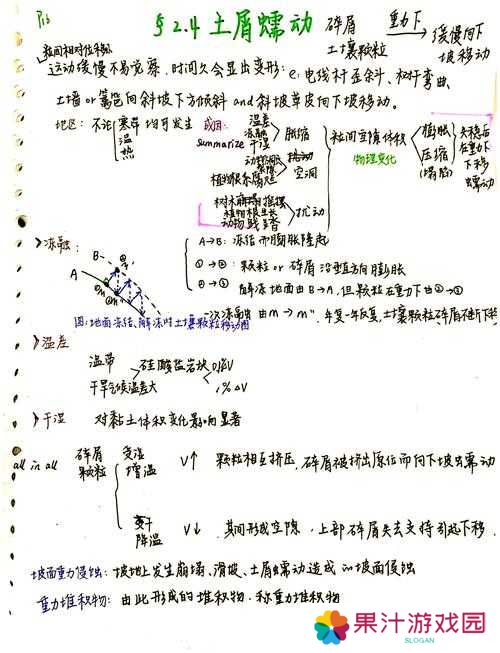 P15
§2.4 土屑蠕动 碎屑 土壤颗粒 重力下 缓慢向下坡移动
运动缓慢不易觉察，时间久会显出变形：e：电线杆歪斜、树干弯曲、
土墙 or 篱笆向斜坡下方倾斜 and 斜坡草皮向下坡移动。
地区：不论 寒 温 热 带均可发生
成因：summarize
温差 冻融 干湿 胀缩
植物根系腐烂 空洞
动物践踏 扰动
粒间空隙体积 膨胀 压缩 (塌陷)
物理变化
失稳后在重力下下移 蠕动
>冻融：
A B
A→B：冻结而膨胀隆起
①→②：颗粒 or 碎屑沿垂直方向膨胀
②→③ 解冻地面由B→A，但颗粒在重力下由②→③
图：地面冻结、解冻时土壤颗粒移动图
一次冻融由m→m''，年复一年反复，土壤颗粒碎屑不断下移
>温差
温带
干旱气候温差大
硅酸盐岩块
1% ΔV
>干湿 对黏土体积变化影响显著
all in all 碎屑 颗粒
受湿 增温 V↑ 颗粒相互挤压，碎屑被挤出原位而向下坡蠕动
变干 降温 V↓ 其间形成空隙，上部碎屑失去支持引起下移.
坡面重力侵蚀：坡地上发生崩塌、滑坡、土屑蠕动造成的坡面侵蚀
重力堆积物：由此形成的堆积物.称重力堆积物
果汁游戏园
SLOGAN